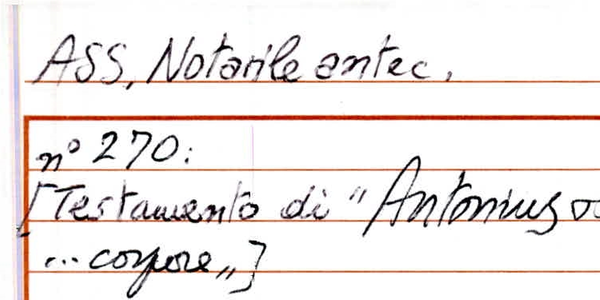 ASS, Notarile antec.
n° 270:
[Testamento di "Antonius
... corpore"]